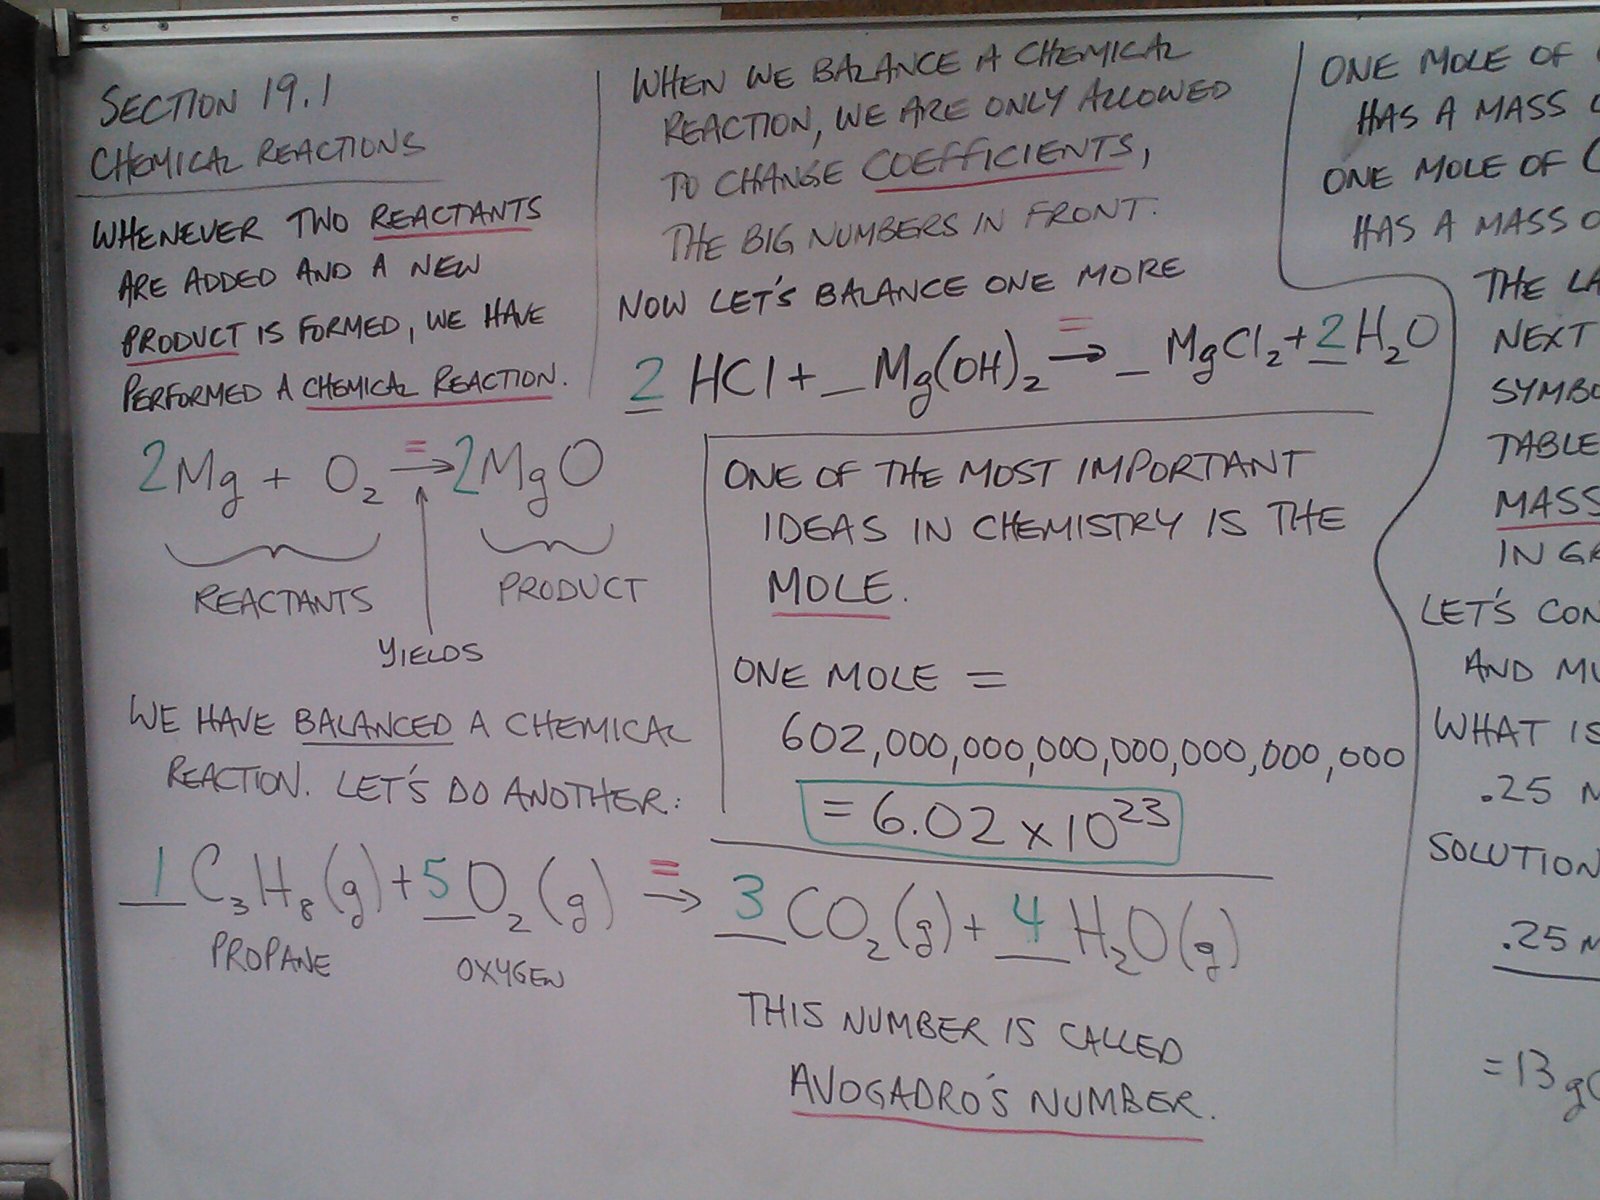 SECTION 19.1
CHEMICAL REACTIONS
WHENEVER TWO REACTANTS
ARE ADDED AND A NEW
PRODUCT IS FORMED, WE HAVE
PERFORMED A CHEMICAL REACTION.
2Mg + O₂ =→ 2MgO
REACTANTS
PRODUCT
YIELDS
WE HAVE BALANCED A CHEMICAL
REACTION. LET'S DO ANOTHER:
1 C₃H₈(g) + 5 O₂(g) =→ 3 CO₂(g) + 4 H₂O(g)
PROPANE
OXYGEN
WHEN WE BALANCE A CHEMICAL
REACTION, WE ARE ONLY ALLOWED
TO CHANGE COEFFICIENTS,
THE BIG NUMBERS IN FRONT.
NOW LET'S BALANCE ONE MORE
2 HCl + _ Mg(OH)₂ =→ _ MgCl₂ + 2 H₂O
ONE OF THE MOST IMPORTANT
IDEAS IN CHEMISTRY IS THE
MOLE.
ONE MOLE =
602,000,000,000,000,000,000,000
= 6.02 x 10²³
THIS NUMBER IS CALLED
AVOGADRO'S NUMBER.
ONE MOLE OF
HAS A MASS
ONE MOLE OF
HAS A MASS
THE
NEXT
IN
LET'S
AND
WHAT IS
.25
SOLUTION
.25
= 13 g